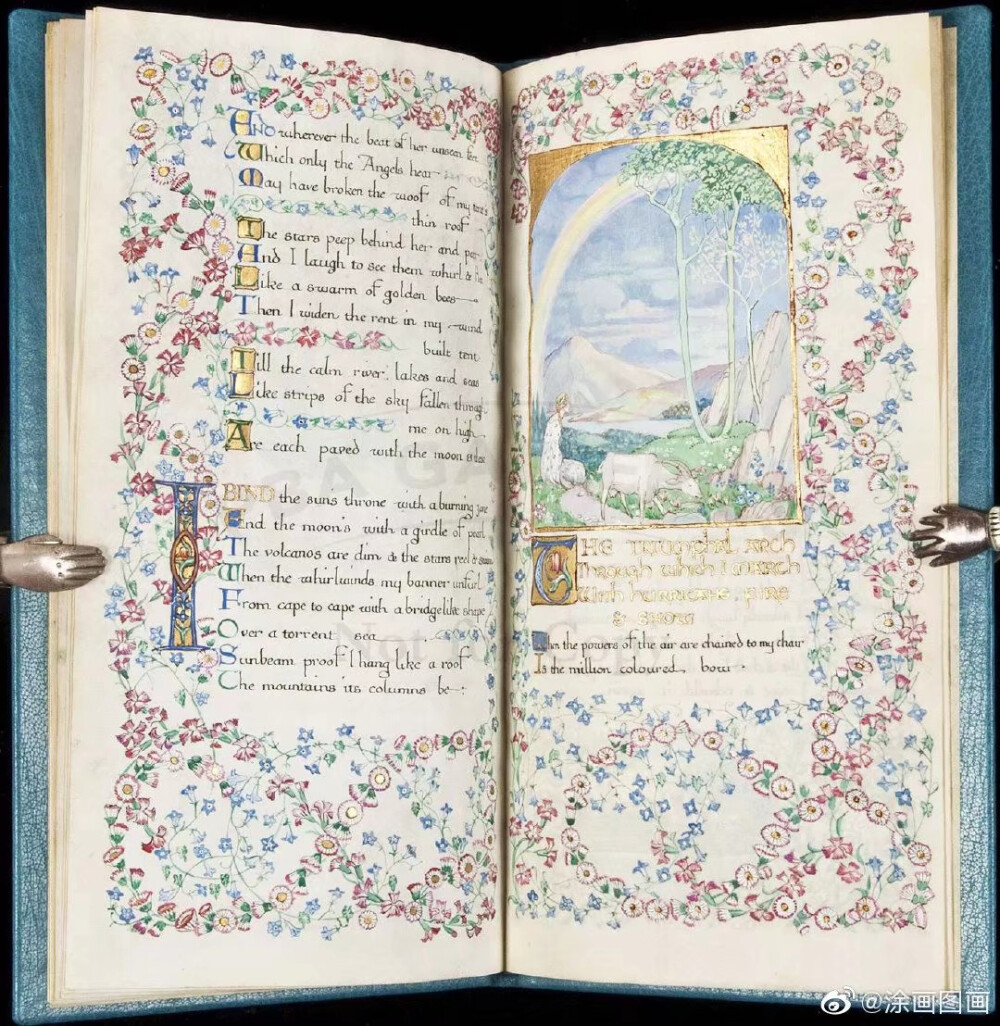 And wherever the beat of her unseen feet
Which only the Angels hear—
May have broken the woof of my tent's
thin roof
The stars peep behind her and peer
And I laugh to see them whirl & flee
Like a swarm of golden bees—
Then I widen the rent in my wind
built tent
Till the calm river, lakes and seas
Like strips of the sky fallen through
me on high
Are each paved with the moon & these
I BIND the suns throne with a burning zone
And the moon's with a girdle of pearl
The volcanos are dim & the stars reel & swim
When the whirlwinds my banner unfurl
From cape to cape with a bridgelike shape
Over a torrent sea
Sunbeam proof I hang like a roof
The mountains its columns be—:
THE TRIUMPHAL ARCH
Through which I MARCH
With HURRICANE, FIRE
& SNOW
When the powers of the air are chained to my chair
Is the million coloured, bow ·
Not for
@涂画图画